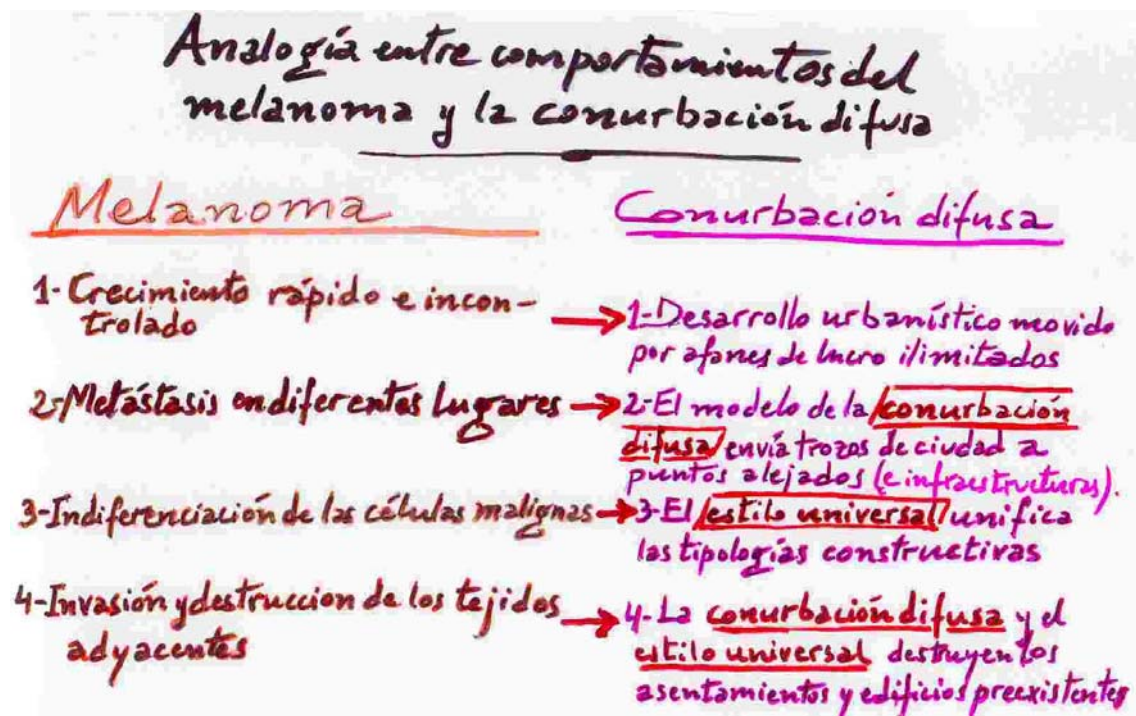 Analogía entre comportamientos del
melanoma y la conurbación difusa
Melanoma
1- Crecimiento rápido e incon-
trolado
2- Metástasis en diferentes lugares →
3- Indiferenciación de las células malignas →
4- Invasión y destruccion de los tejidos
adyacentes
Conurbación difusa
→ 1- Desarrollo urbanístico movido
por afanes de lucro ilimitados
2- El modelo de la conurbación
difusa envía trozos de ciudad a
puntos alejados (e infraestructuras).
3- El estilo universal unifica
las tipologías constructivas
→ 4- La conurbación difusa y el
estilo universal destruyen los
asentamientos y edificios preexistentes